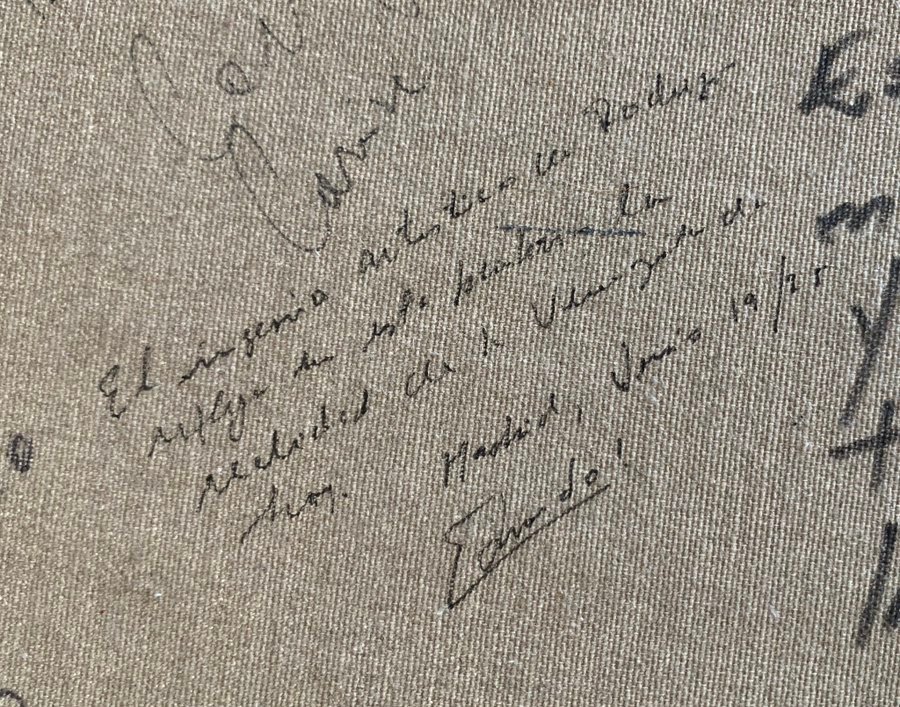 El ingenio artístico de Rodrigo
refleja en esta pintura la
realidad de la Venezuela de
hoy. Madrid, Junio 19/25
Eduardo!